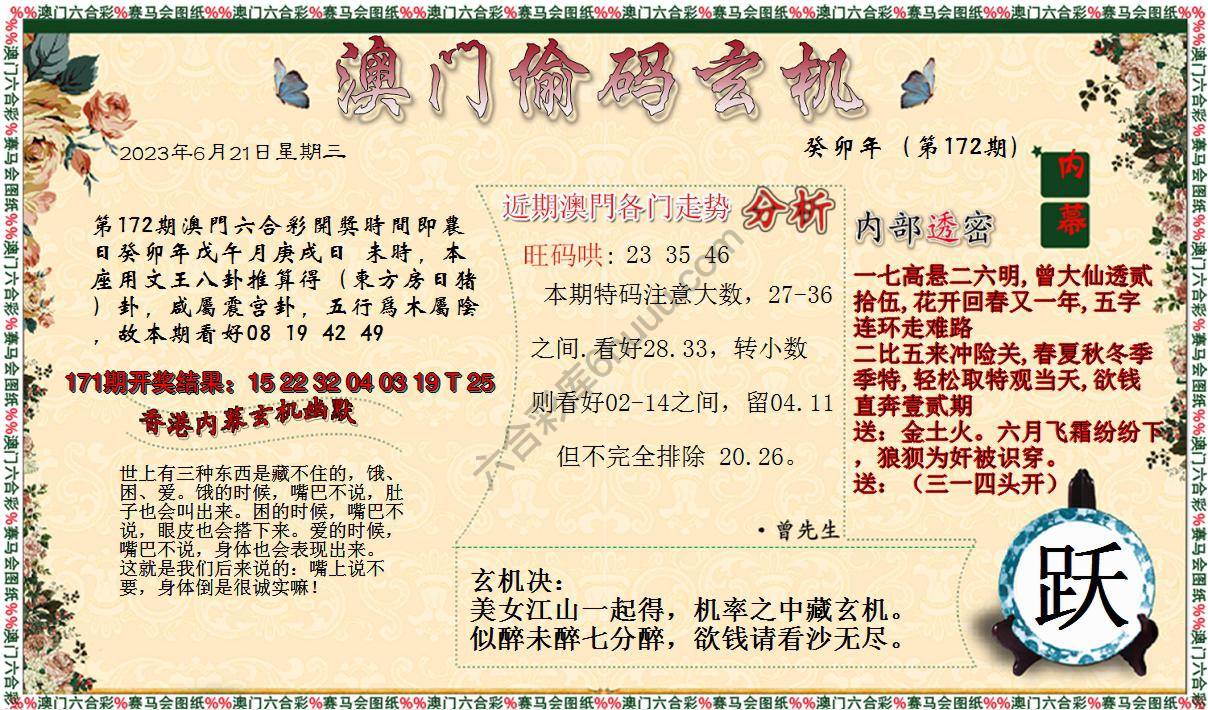 %%澳门六合彩%赛马会图纸%%澳门六合彩%赛马会图纸%%澳门六合彩%赛马会图纸%%澳门六合彩%赛马会图纸%%澳门六合彩%赛马会图纸%%澳门六合彩%赛马会图纸%%
澳门偷码玄机
2023年6月21日星期三
癸卯年（第172期）
内
幕
第172期澳門六合彩開獎時間即農
日癸卯年戊午月庚戌日 未時，本
座用文王八卦推算得（東方房日猪
）卦，咸屬震宫卦，五行爲木屬陰
，故本期看好08 19 42 49
171期开奖结果：15 22 32 04 03 19 T 25
香港内幕玄机幽默
世上有三种东西是藏不住的，饿、
困、爱。饿的时候，嘴巴不说，肚
子也会叫出来。困的时候，嘴巴不
说，眼皮也会搭下来。爱的时候，
嘴巴不说，身体也会表现出来。
这就是我们后来说的：嘴上说不
要，身体倒是很诚实嘛！
近期澳門各门走势 分析
旺码哄: 23 35 46
本期特码注意大数，27-36
之间.看好28.33，转小数
则看好02-14之间，留04.11
但不完全排除 20.26。
·曾先生
内部透密
一七高悬二六明,曾大仙透贰
拾伍,花开回春又一年,五字
连环走难路
二比五来冲险关,春夏秋冬季
季特,轻松取特观当天,欲钱
直奔壹贰期
送：金土火。六月飞霜纷纷下
，狼狈为奸被识穿。
送：（三一四头开）
玄机决：
美女江山一起得，机率之中藏玄机。
似醉未醉七分醉，欲钱请看沙无尽。
跃